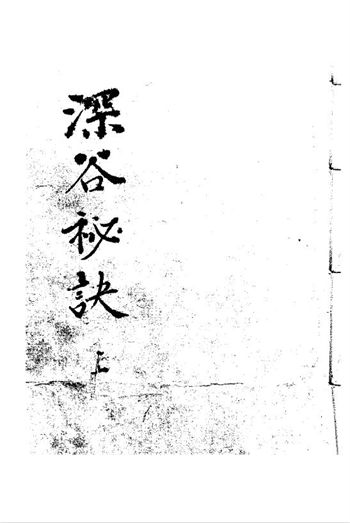 深谷祕訣 上